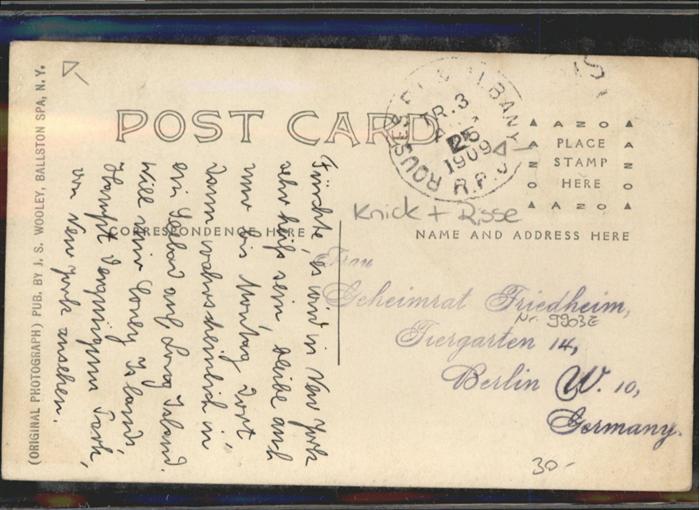 POST CARD
CORRESPONDENCE HERE
NAME AND ADDRESS HERE
PLACE
STAMP
HERE
AZO
AZO
AZO
AZO
ROUSES P. & ALBANY
TR. 3
25
1909
R.P.O.
Knick + Risse
Frau
Geheimrat Friedheim,
Nr. 9903E
Tiergarten 14,
Berlin W. 10,
Germany.
30.-
Fürchte, es wird in New York
sehr heiß sein, bleibe auch
nur bis Montag dort
dann wahrscheinlich in
ein Seebad auf Long Island.
Will mir Coney Island,
Haupt Vergnügungs Park,
von New York ansehen.
(ORIGINAL PHOTOGRAPH) PUB. BY J. S. WOOLEY, BALLSTON SPA, N. Y.